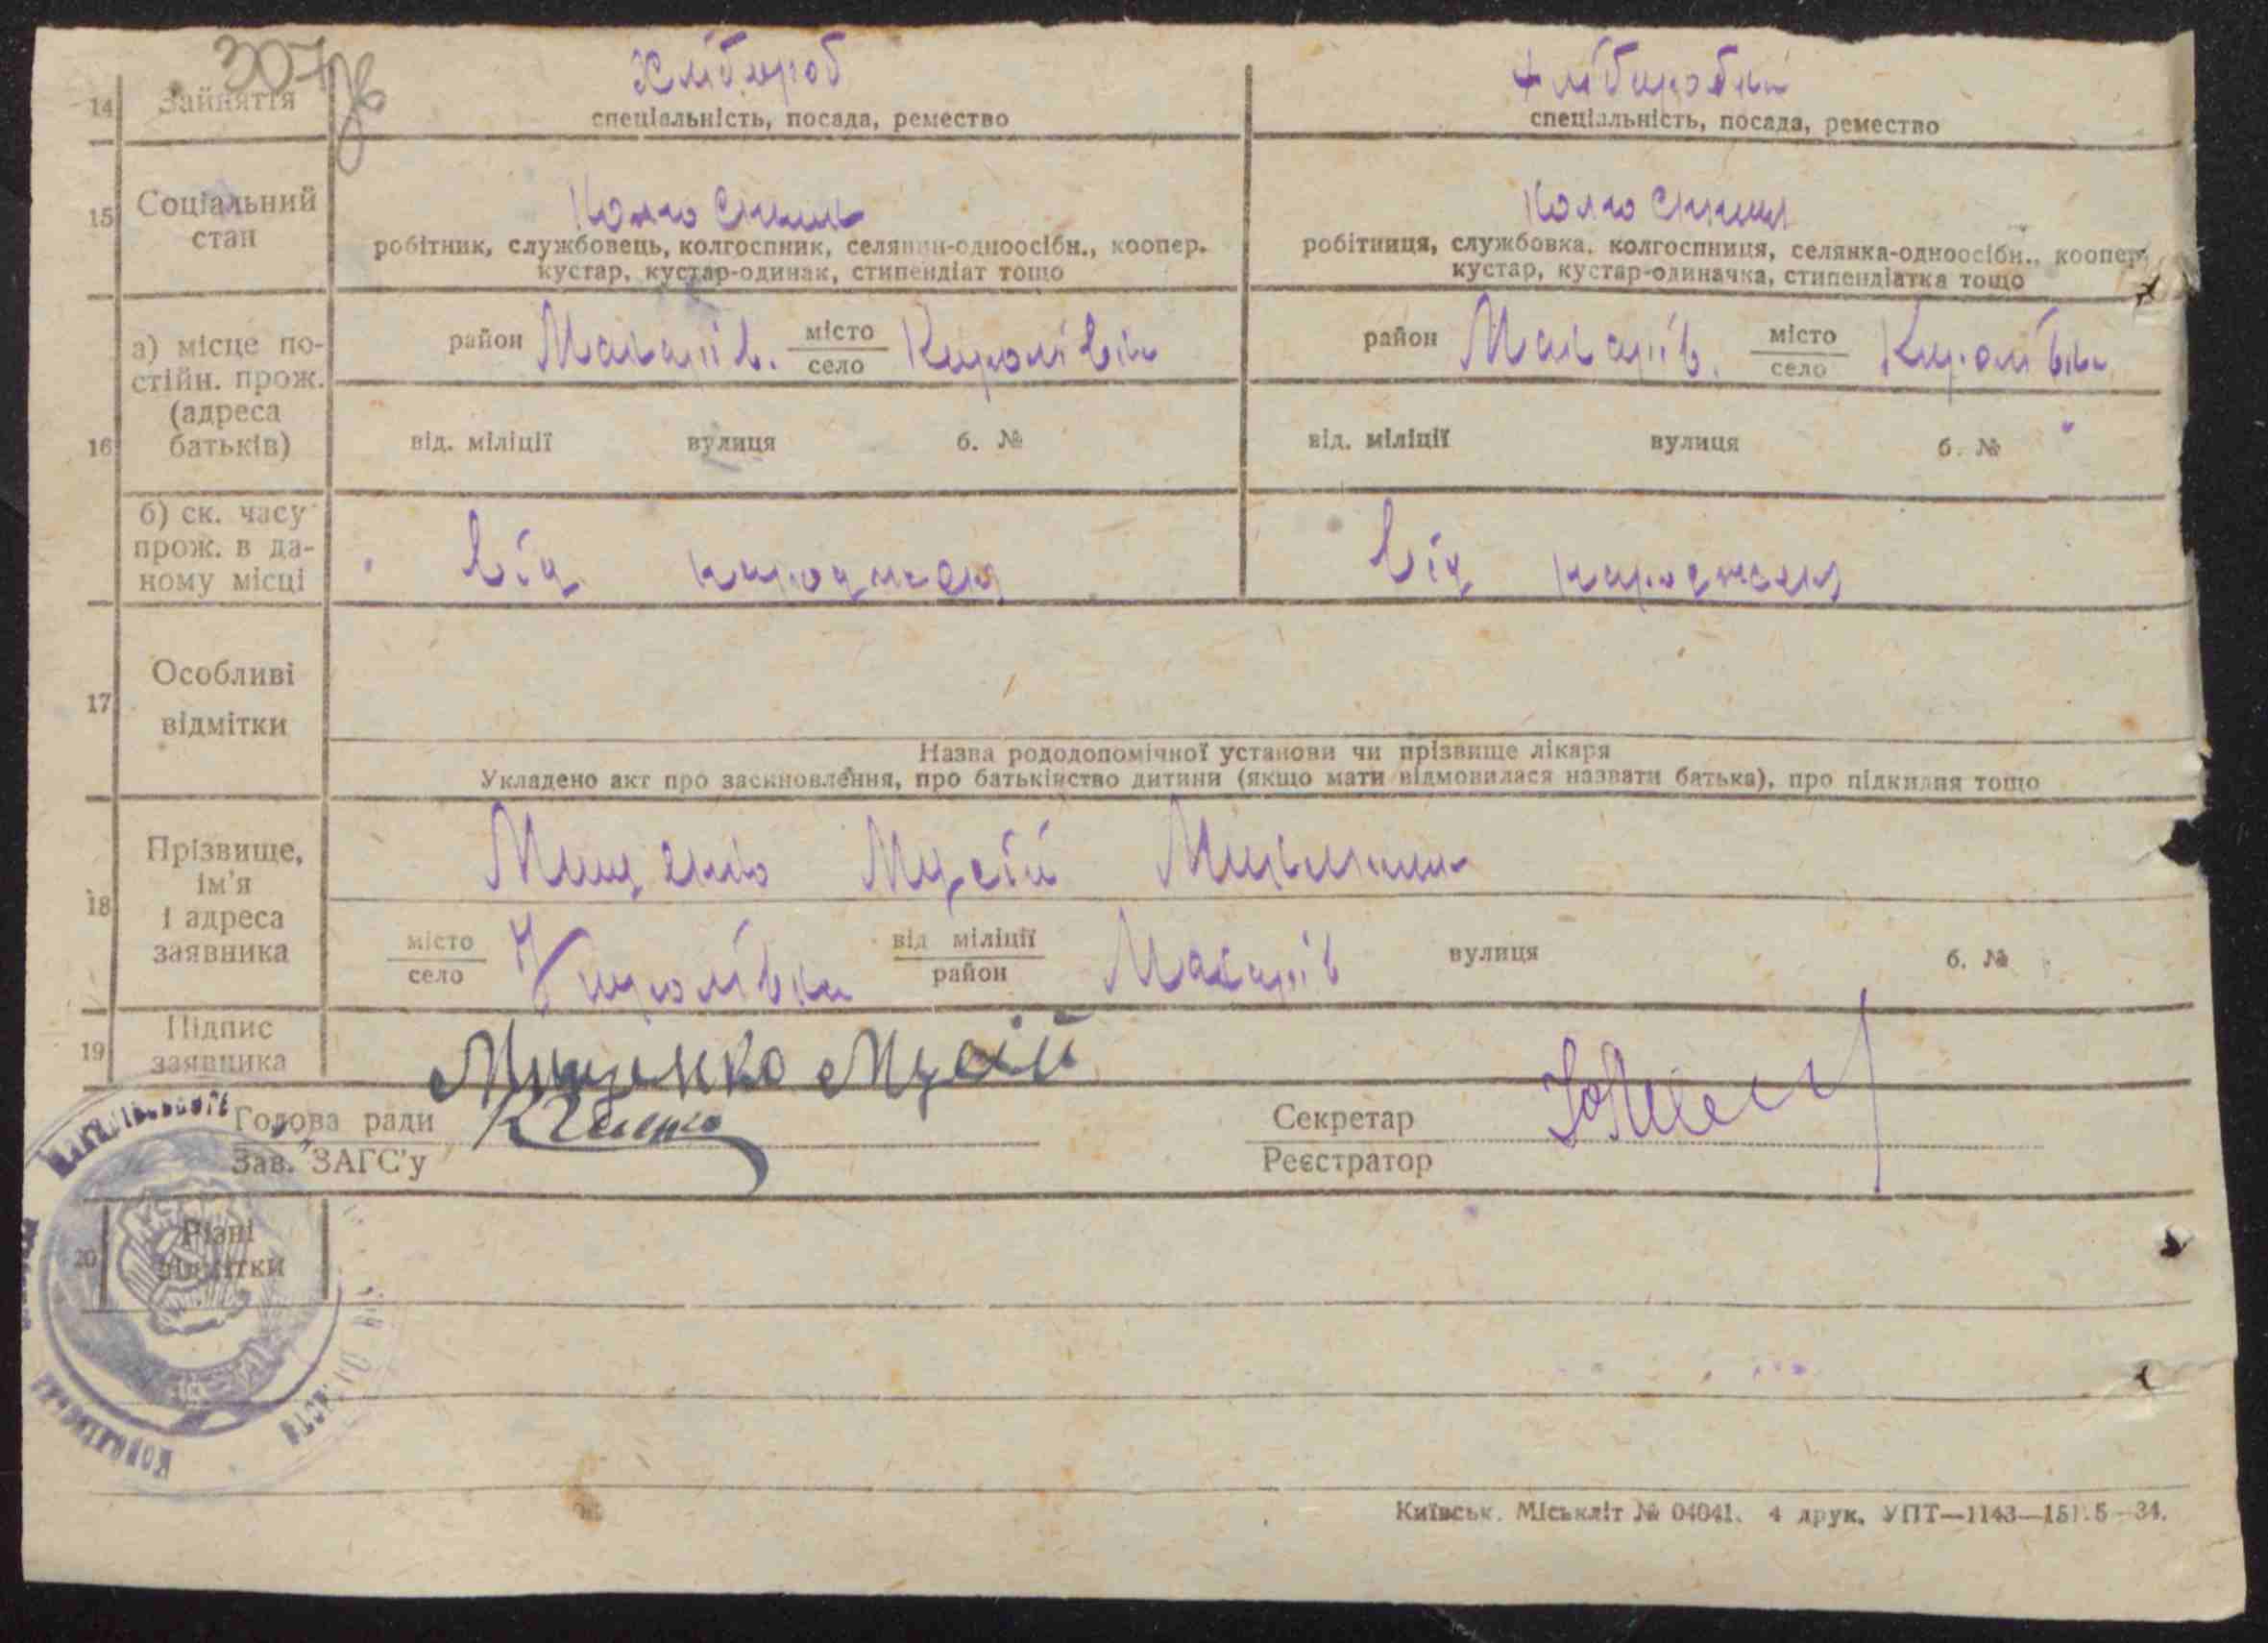 307 зв
14 Зайняття Хлібороб
спеціальність, посада, ремество
Хліборобка
спеціальність, посада, ремество
15 Соціальний стан
робітник, службовець, колгоспник, селянин-одноосібн., коопер.
кустар, кустар-одинак, стипендіат тощо
робітниця, службовка, колгоспниця, селянка-одноосібн., коопер.
кустар, кустар-одиначка, стипендіатка тощо
16 а) місце по-
стійн. прож.
(адреса
батьків)
район Макарів. місто
село Королівка
район Макарів. місто
село Королівка
від. міліції вулиця б. №
від. міліції вулиця б. №
б) ск. часу
прож. в да-
ному місці
від
від
17 Особливі
відмітки
Назва рододопомічної установи чи прізвище лікаря
Укладено акт про засиновлення, про батьківство дитини (якщо мати відмовилася назвати батька), про підкидня тощо
18 Прізвище,
ім'я
і адреса
заявника
Мищенко Мусій
місто
село Королівка від міліції
район Макарів вулиця б. №
19 Підпис
заявника
Мищенко Мусій
Голова ради
Зав. ЗАГС'у
Секретар
Реєстратор
20 Різні
відмітки
Київськ. Міськліт № 04041. 4 друк. УПТ—1143—151.5—34.